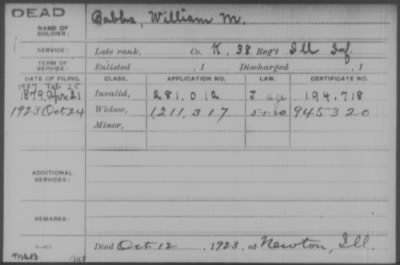 DEAD
NAME OF SOLDIER:
Babbs, William M.
SERVICE:
Late rank, Co. K, 38 Reg't Ill Inf.
TERM OF SERVICE:
Enlisted , 1 Discharged , 1
DATE OF FILING. CLASS. APPLICATION NO. LAW. CERTIFICATE NO.
1879, Apr 21 Invalid, 281,012 194,718
1923 Oct 24 Widow, 1,211,317 945320
Minor,
ADDITIONAL SERVICES:
REMARKS:
Died Oct 12, 1923, at Newton, Ill.